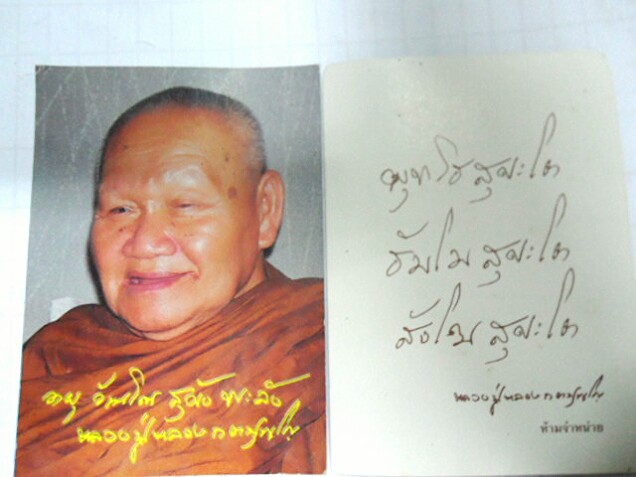 อายุ วัณโณ สุขัง พะลัง
หลวงปู่หลวง กตปุญฺโญ
พุทโธ สุขะโต
ธัมโม สุขะโต
สังโฆ สุขะโต
หลวงปู่หลวง กตปุญฺโญ
ห้ามจำหน่าย